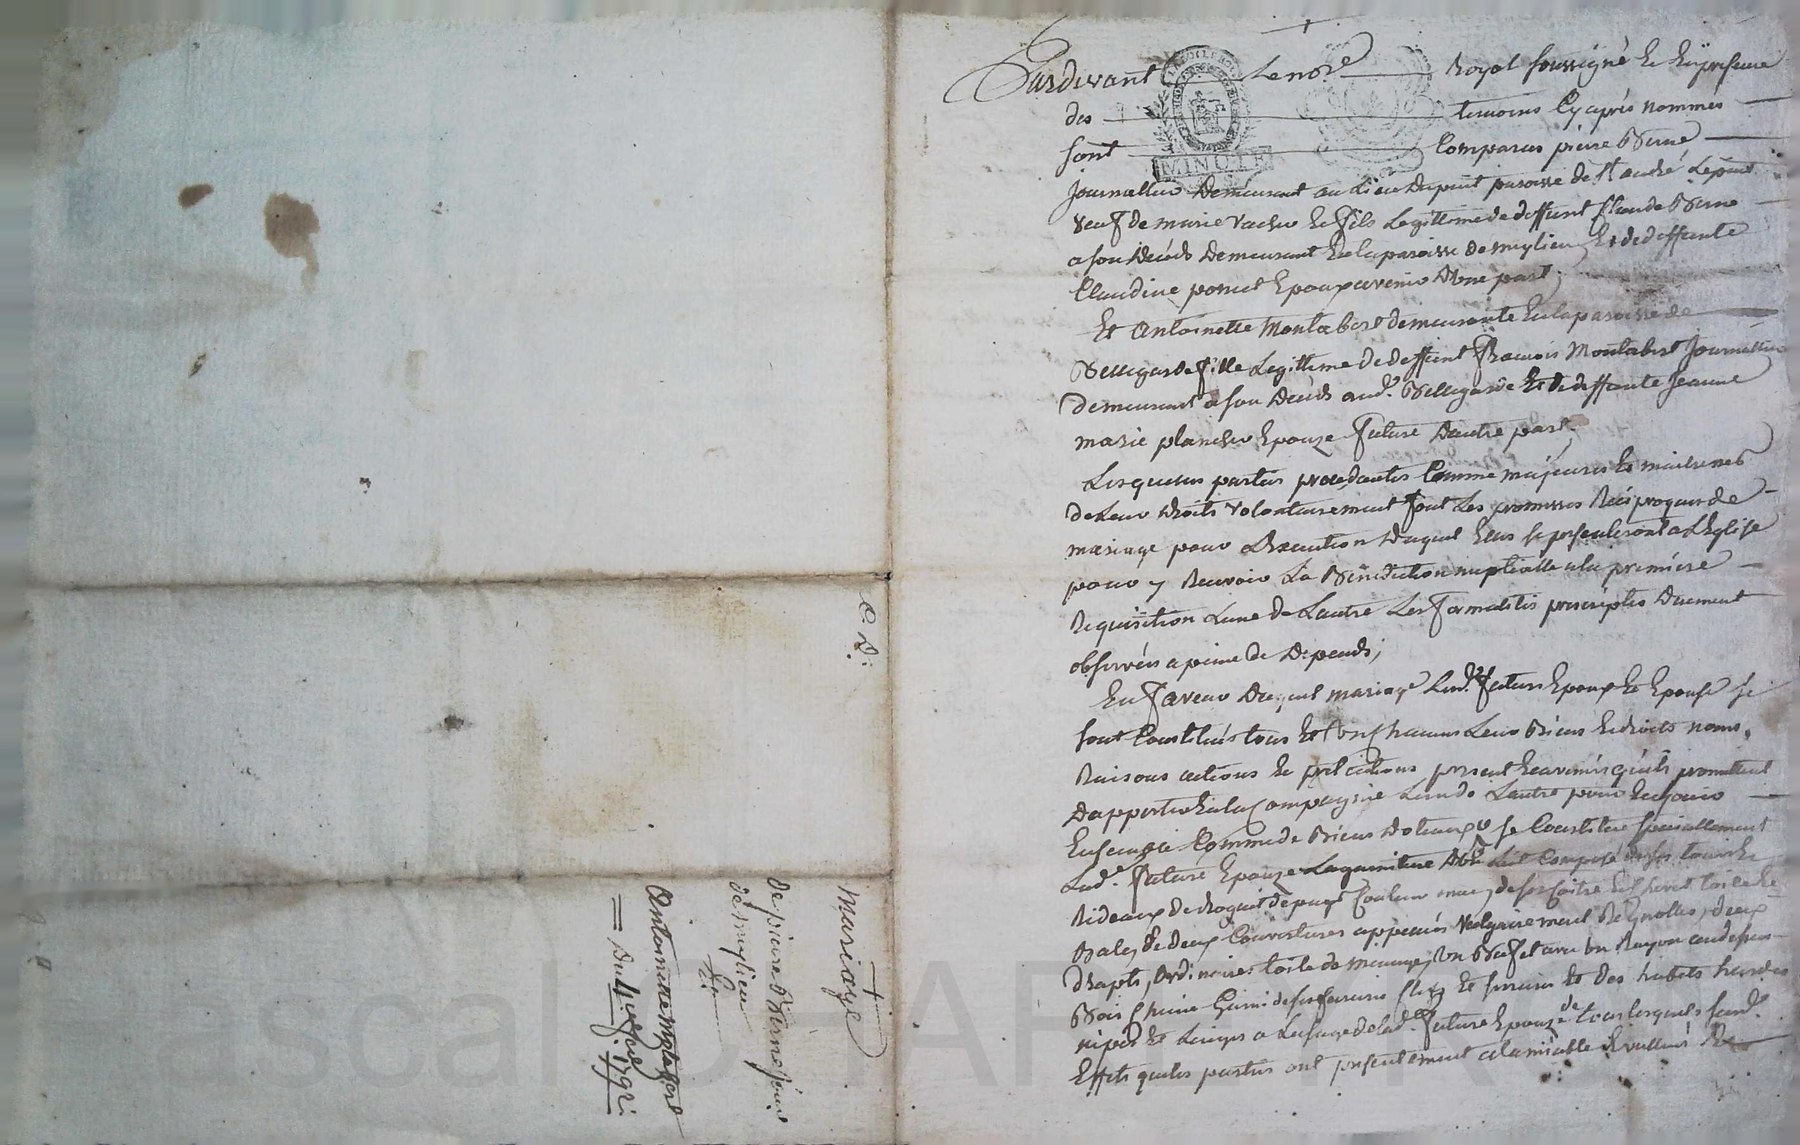 Pardevant Le no.re Royal soussigné Et En presence
des temoins Cy après nommés
sont Comparus pierre Berne
journallier Demeurant au Lieu Dupuit paroisse de St André Lepuit
veuf de marie vacher Et fils Legittime de deffunt Claude Berne
a son décéds Demeurant En la paroisse de miglieu Et de deffunte
Claudine poncet Epoux avenir d'Une part;
Et Antoinette Montabert demeurante En la paroisse de
Bellegarde fille Legittime de deffunt François Montabert Journallier
demeurant a son décéds aud.t Bellegarde Et de deffunte Jeanne
marie plancher Epouze future Dautre part.
Lesquelles parties procedantes Comme majeures Et maitresses
de Leur droits volontairement font Les promesses Réciproques de
mariage pour L'Execution duquel Elles se presenteront a L'Eglise
pour y Recevoir La Bénédiction nuptialle a la première
Requisition Lune de Lautre Les formalités prescriptes Duement
observées a peine de Depends;
En faveur Duquel mariage Lesd.s futurs Epoux Et Epouse se
sont Constitués tous Et Un Chacuns Leurs Biens Et droits noms,
Raisons actions Et pretentions present Et avenirs qu'ils promettent
Dapporter En la Compagnie Lun de Lautre pour En jouir
Ensemble Comme de Biens dotaux se Constitue specialement
Lad.e future Epouze La garniture d'Un Lit Composé de
Rideaux de Couleur
de deux Couvertures appellés Vulgairement deux
draps, ordinaires toile de menage, Un Buffet avec Un Rayon au dessus
Bois Chaine Garni de ses Clef Et serrures Et des habits hardes
nipes Et Linges a Lusage de Lad.e future Epouze de tous Lesquels susd.s
Effets que les parties ont presentement a Lamiable
C. D.
Mariage
de pierre Berne
de miglieu
Et
Antoinette Montabert
1792.
MINUTE